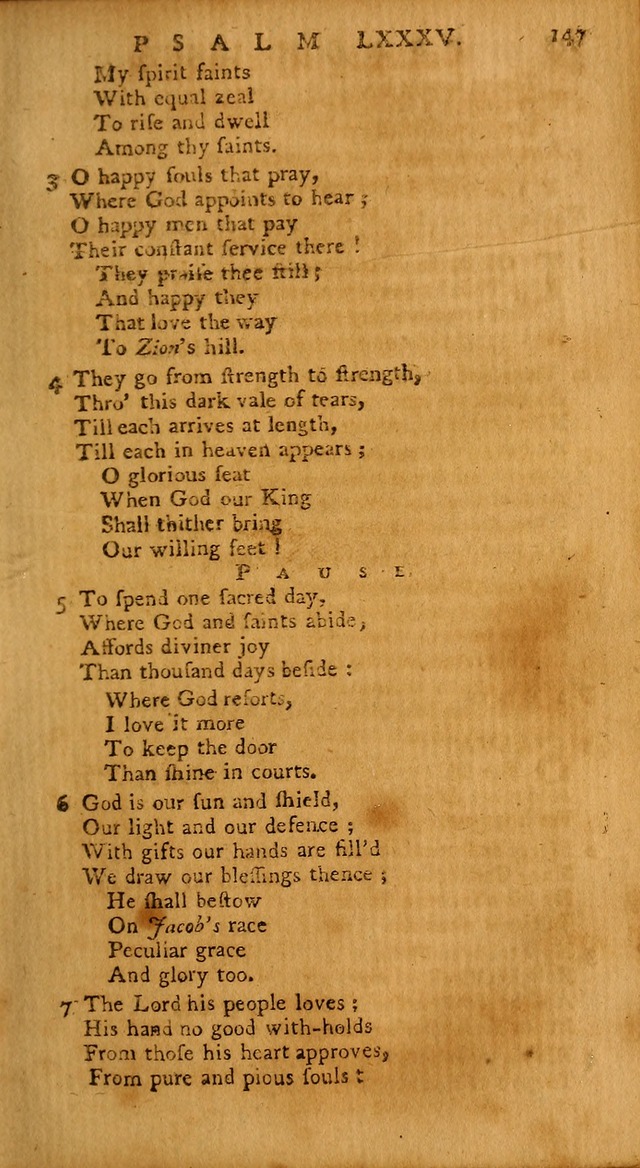 PSALM LXXXV. 147
My ſpirit faints
With equal zeal
To riſe and dwell
Among thy ſaints.
3 O happy ſouls that pray,
Where God appoints to hear ;
O happy men that pay
Their conſtant ſervice there !
They praiſe thee ſtill ;
And happy they
That love the way
To Zion's hill.
4 They go from ſtrength to ſtrength,
Thro' this dark vale of tears,
Till each arrives at length,
Till each in heaven appears ;
O glorious ſeat
When God our King
Shall thither bring
Our willing feet !
PAUSE.
5 To ſpend one ſacred day,
Where God and ſaints abide,
Affords diviner joy
Than thouſand days beſide :
Where God reſorts,
I love it more
To keep the door
Than ſhine in courts.
6 God is our ſun and ſhield,
Our light and our defence ;
With gifts our hands are fill'd
We draw our bleſſings thence ;
He ſhall beſtow
On Jacob's race
Peculiar grace
And glory too.
7 The Lord his people loves ;
His hand no good with-holds
From thoſe his heart approves,
From pure and pious ſouls :